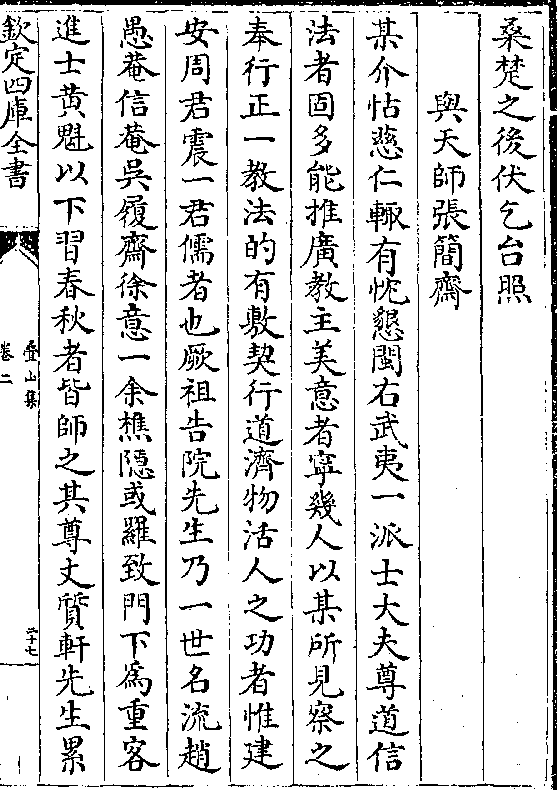 桑楚之後伏乞台照
與天師張簡齋
某介怙慈仁輒有忱懇閩右武夷一派士大夫尊道信
法者固多能推廣教主美意者寧幾人以某所見察之
奉行正一教法的有敷契行道濟物活人之功者惟建
安周君震一君儒者也厥祖告院先生乃一世名流趙
愚菴信菴吳履齋徐意一余樵隠或羅致門下為重客
進士黄魁以下習春秋者皆師之其尊丈質軒先生累
欽定四庫全書
疊山集
卷二
二十七